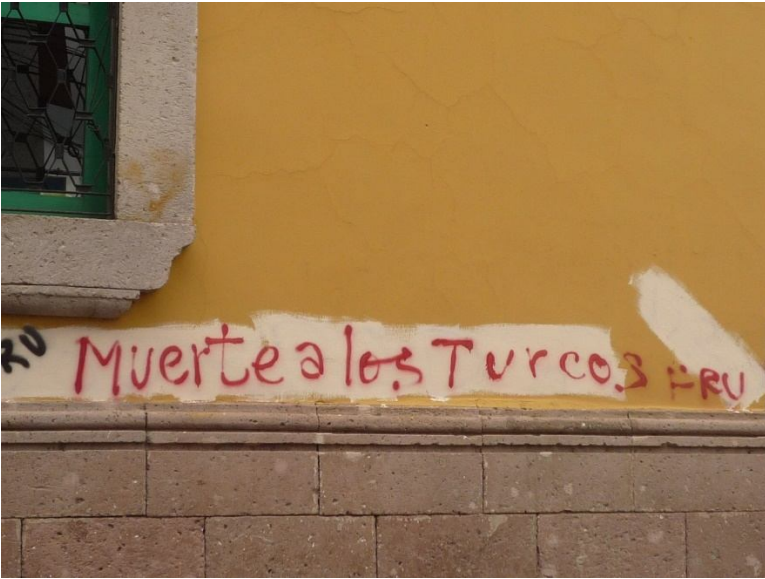 RU Muerte a los Turcos FRU